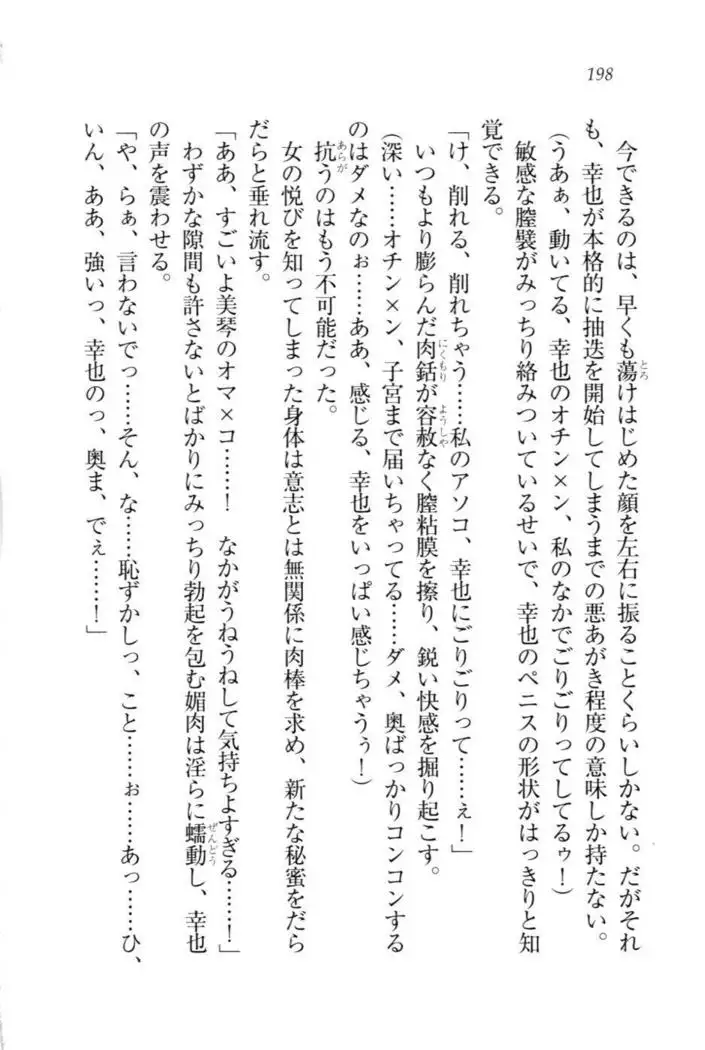 198
今できるのは、早くも蕩けはじめた顔を左右に振ることくらいしかない。だがそれ
も、幸也が本格的に抽迭を開始してしまうまでの悪あがき程度の意味しか持たない。
(うあぁ、動いてる、幸也のオチン×ン、私のなかでごりごりってしてるゥ!)
敏感な膣襞がみっちり絡みついているせいで、幸也のペニスの形状がはっきりと知
覚できる。
「け、削れる、削れちゃう……私のアソコ、幸也にごりごりって……ぇ!」
いつもより膨らんだ肉銛が容赦なく膣粘膜を擦り、鋭い快感を掘り起こす。
(深い……オチン×ン、子宮まで届いちゃってる……ダメ、奥ばっかりコンコンする
のはダメなのぉ……ああ、感じる、幸也をいっぱい感じちゃうぅ!)
抗うのはもう不可能だった。
女の悦びを知ってしまった身体は意志とは無関係に肉棒を求め、新たな秘蜜をだら
だらと垂れ流す。
「ああ、すごいよ美琴のオマ×コ……! なかがうねうねして気持ちよすぎる……!」
わずかな隙間も許さないとばかりにみっちり勃起を包む媚肉は淫らに蠕動し、幸也
の声を震わせる。
「や、らぁ、言わないでっ……そん、な……恥ずかしっ、こと……ぉ……あっ……ひ、
いん、ああ、強いっ、幸也のっ、奥ま、でぇ……!」